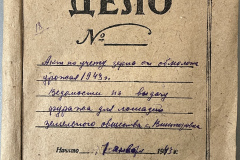 ДЕЛО
№
Акты по учету зерна от обмолота
урожая 1943 г.
Ведомости на выдачу
фуража для лошадей
земельного общества с.
Начато 7 января 1943 г.